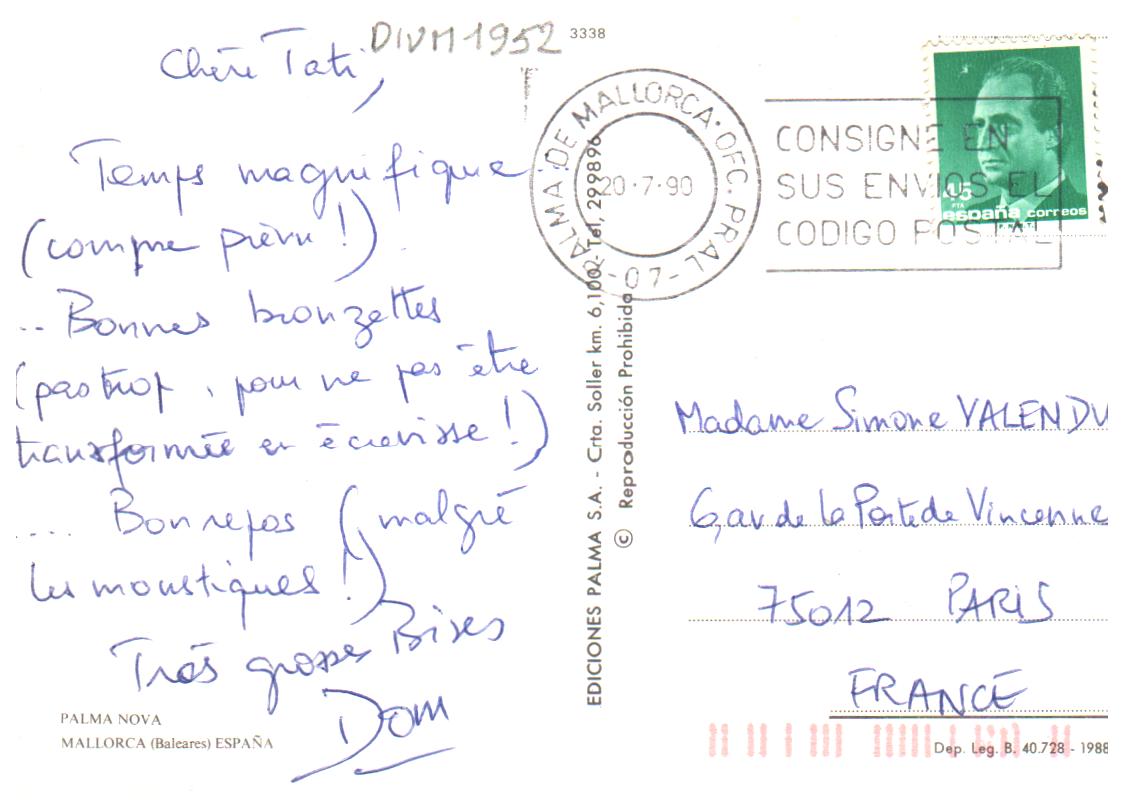 DIVM1952
3338
Chère Tati,
Temps magnifique
(comme prévu !)
.. Bonnes bronzettes
(pas trop, pour ne pas être
transformée en écrevisse !)
... Bon repos (malgré
les moustiques !)
Très grosses Bises
Dom
PALMA NOVA
MALLORCA (Baleares) ESPAÑA
EDICIONES PALMA S.A. - Crta. Soller km. 6,100 - Tel. 299896
© Reproducción Prohibida
PALMA DE MALLORCA · OFC. PRAL
20·7·90
-07-
CONSIGNE EN
SUS ENVIOS EL
CODIGO POSTAL
45
PTA
españa correos
F.N.M.T.
Madame Simone VALENDU
6, av de la Porte de Vincenne
75012 PARIS
FRANCE
Dep. Leg. B. 40.728 - 1988